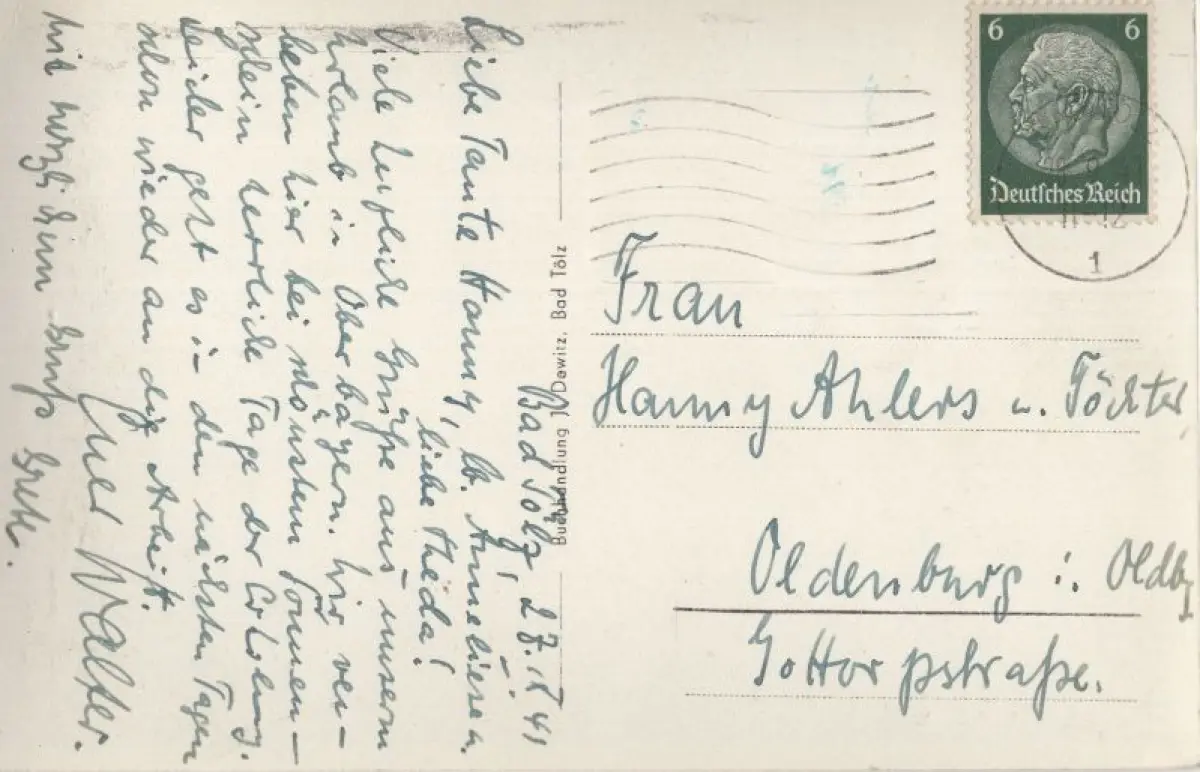 Bad Tölz, 27. IX 41
Liebe Tante Hanny, lb. Anneliese u.
liebe Theda!
Viele herzliche Grüße aus unserm
Urlaub in Oberbayern. Wir ver-
leben hier bei schönstem Sonnen-
schein herrliche Tage der Erholung.
Leider geht es in den nächsten Tagen
schon wieder an die Arbeit.
Mit herzlichem Gruß
Euer Walter.
Grete.
Buchhandlung J. Dewitz, Bad Tölz
6 6
Deutsches Reich
1
Frau
Hanny Ahlers u. Töchter
Oldenburg i. Oldbg
Gottorpstraße.